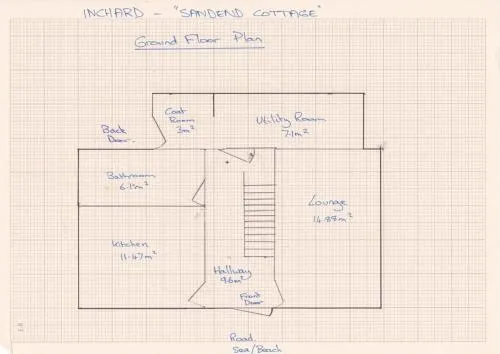 INCHARD - "SANDEND COTTAGE"
Ground Floor Plan
Coat
Room
3m²
Utility Room
7.1m²
Back
Door.
Bathroom
6.1m²
Lounge
14.88m²
Kitchen
11.47m²
Hallway
9.6m²
Front
Door
Road.
Sea/Beach